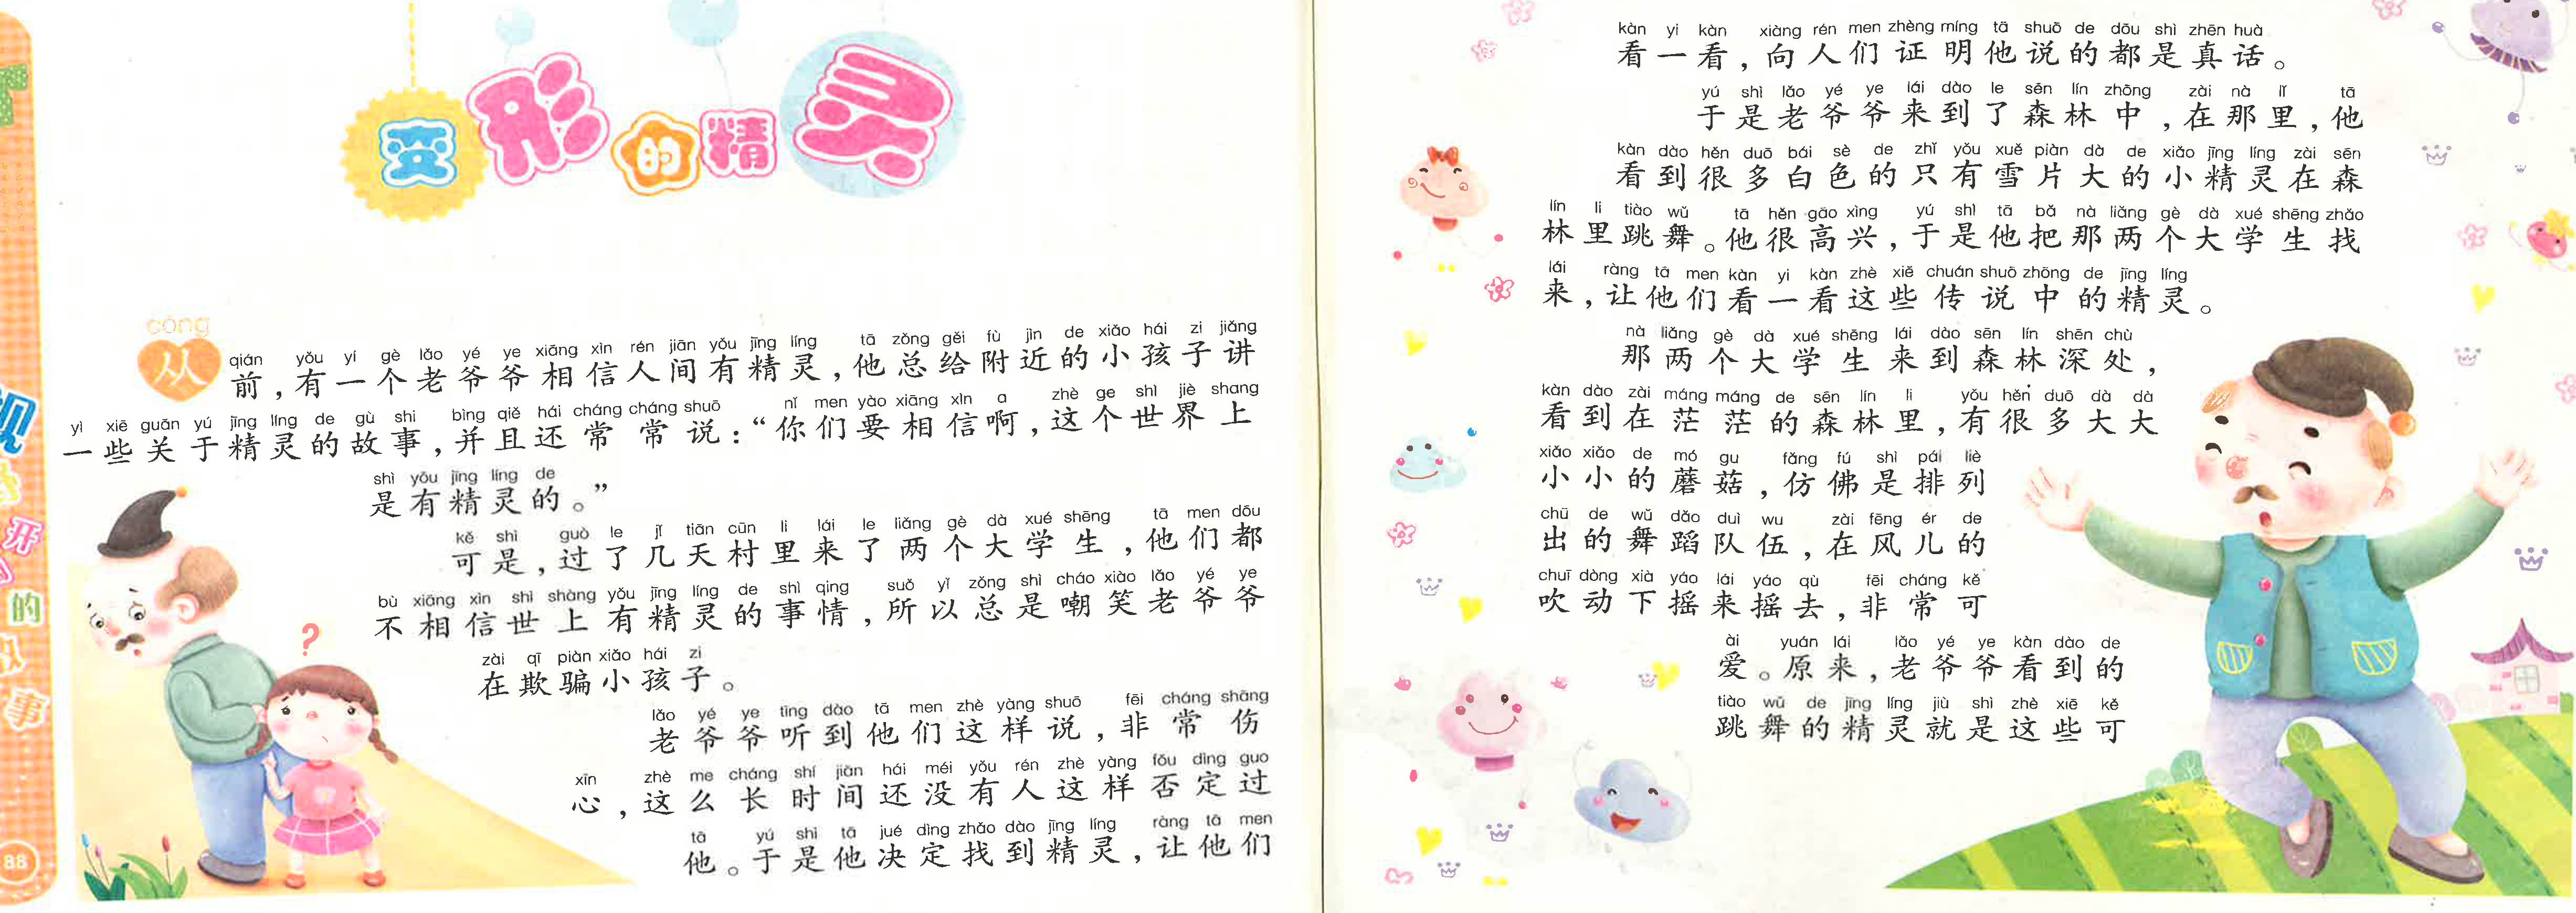 变形的精灵
cóng
从
qián yǒu yí gè lǎo yé ye xiāng xìn rén jiān yǒu jīng líng tā zǒng gěi fù jìn de xiǎo hái zi jiǎng
前，有一个老爷爷相信人间有精灵，他总给附近的小孩子讲
yì xiē guān yú jīng líng de gù shi bìng qiě hái cháng cháng shuō nǐ men yào xiāng xìn a zhè ge shì jiè shang
一些关于精灵的故事，并且还常常说：“你们要相信啊，这个世界上
shì yǒu jīng líng de
是有精灵的。”
kě shì guò le jǐ tiān cūn li lái le liǎng gè dà xué shēng tā men dōu
可是，过了几天村里来了两个大学生，他们都
bù xiāng xìn shì shàng yǒu jīng líng de shì qing suǒ yǐ zǒng shì cháo xiào lǎo yé ye
不相信世上有精灵的事情，所以总是嘲笑老爷爷
zài qī piàn xiǎo hái zi
在欺骗小孩子。
lǎo yé ye tīng dào tā men zhè yàng shuō fēi cháng shāng
老爷爷听到他们这样说，非常伤
xīn zhè me cháng shí jiān hái méi yǒu rén zhè yàng fǒu dìng guo
心，这么长时间还没有人这样否定过
tā yú shì tā jué dìng zhǎo dào jīng líng ràng tā men
他。于是他决定找到精灵，让他们
88
kàn yi kàn xiàng rén men zhèng míng tā shuō de dōu shì zhēn huà
看一看，向人们证明他说的都是真话。
yú shì lǎo yé ye lái dào le sēn lín zhōng zài nà lǐ tā
于是老爷爷来到了森林中，在那里，他
kàn dào hěn duō bái sè de zhǐ yǒu xuě piàn dà de xiǎo jīng líng zài sēn
看到很多白色的只有雪片大的小精灵在森
lín li tiào wǔ tā hěn gāo xìng yú shì tā bǎ nà liǎng gè dà xué shēng zhǎo
林里跳舞。他很高兴，于是他把那两个大学生找
lái ràng tā men kàn yi kàn zhè xiē chuán shuō zhōng de jīng líng
来，让他们看一看这些传说中的精灵。
nà liǎng gè dà xué shēng lái dào sēn lín shēn chù
那两个大学生来到森林深处，
kàn dào zài máng máng de sēn lín li yǒu hěn duō dà dà
看到在茫茫的森林里，有很多大大
xiǎo xiǎo de mó gu fǎng fú shì pái liè
小小的蘑菇，仿佛是排列
chū de wǔ dǎo duì wu zài fēng ér de
出的舞蹈队伍，在风儿的
chuī dòng xià yáo lái yáo qù fēi cháng kě
吹动下摇来摇去，非常可
ài yuán lái lǎo yé ye kàn dào de
爱。原来，老爷爷看到的
tiào wǔ de jīng líng jiù shì zhè xiē kě
跳舞的精灵就是这些可